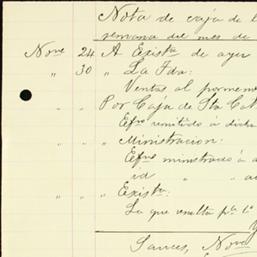 Nota de caja de l
semana del mes de
Nove 24 A Exista de ayer
" 30 " La Fda:
Ventas al pormeno
" " Por Caja de Sta Cat
Efvo remitido á dicha
" " " Ministracion:
Efvo ministrado á a
id " " au
" " " Exista:
La que resulta pa la
Sauces, Nove